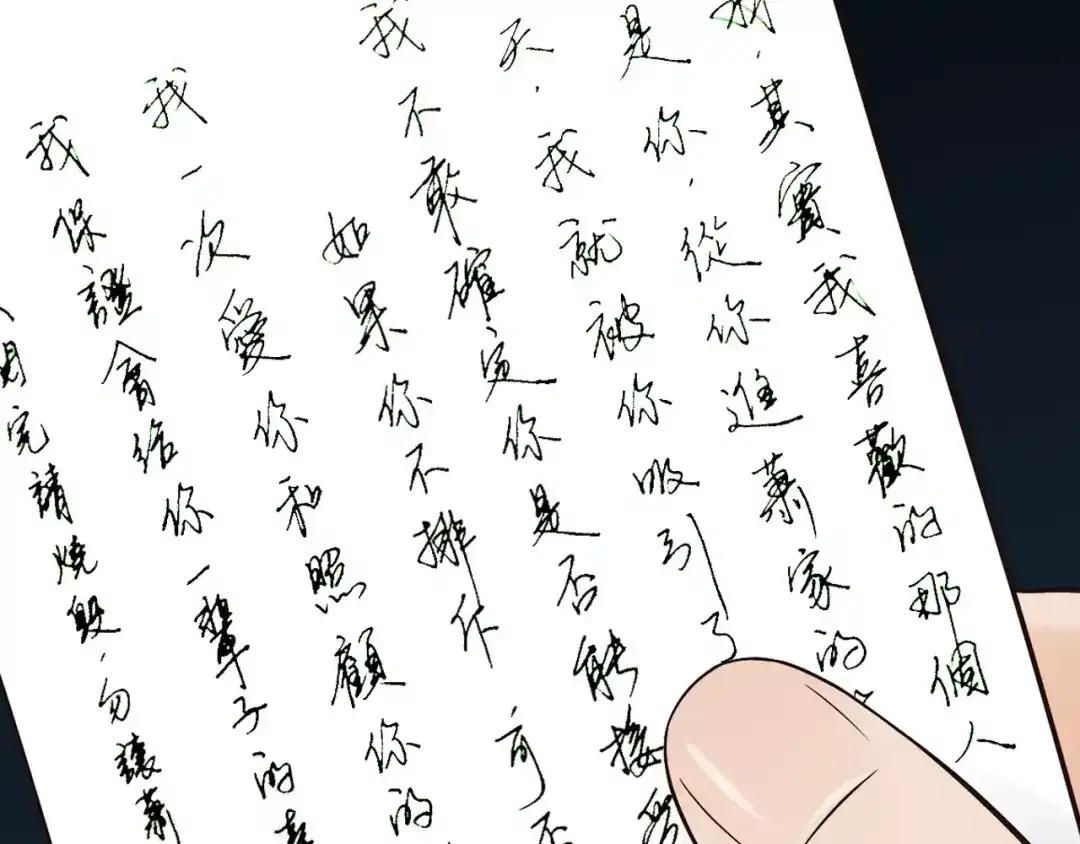 我，其實我喜歡的那個人
是你，從你進蕭家的
天，我就被你吸引了
我不敢確定你是否能接受
如果你不排斥，可否
我一次愛你和照顧你的
我保證會給你一輩子的
完請燒毀，勿讓蕭